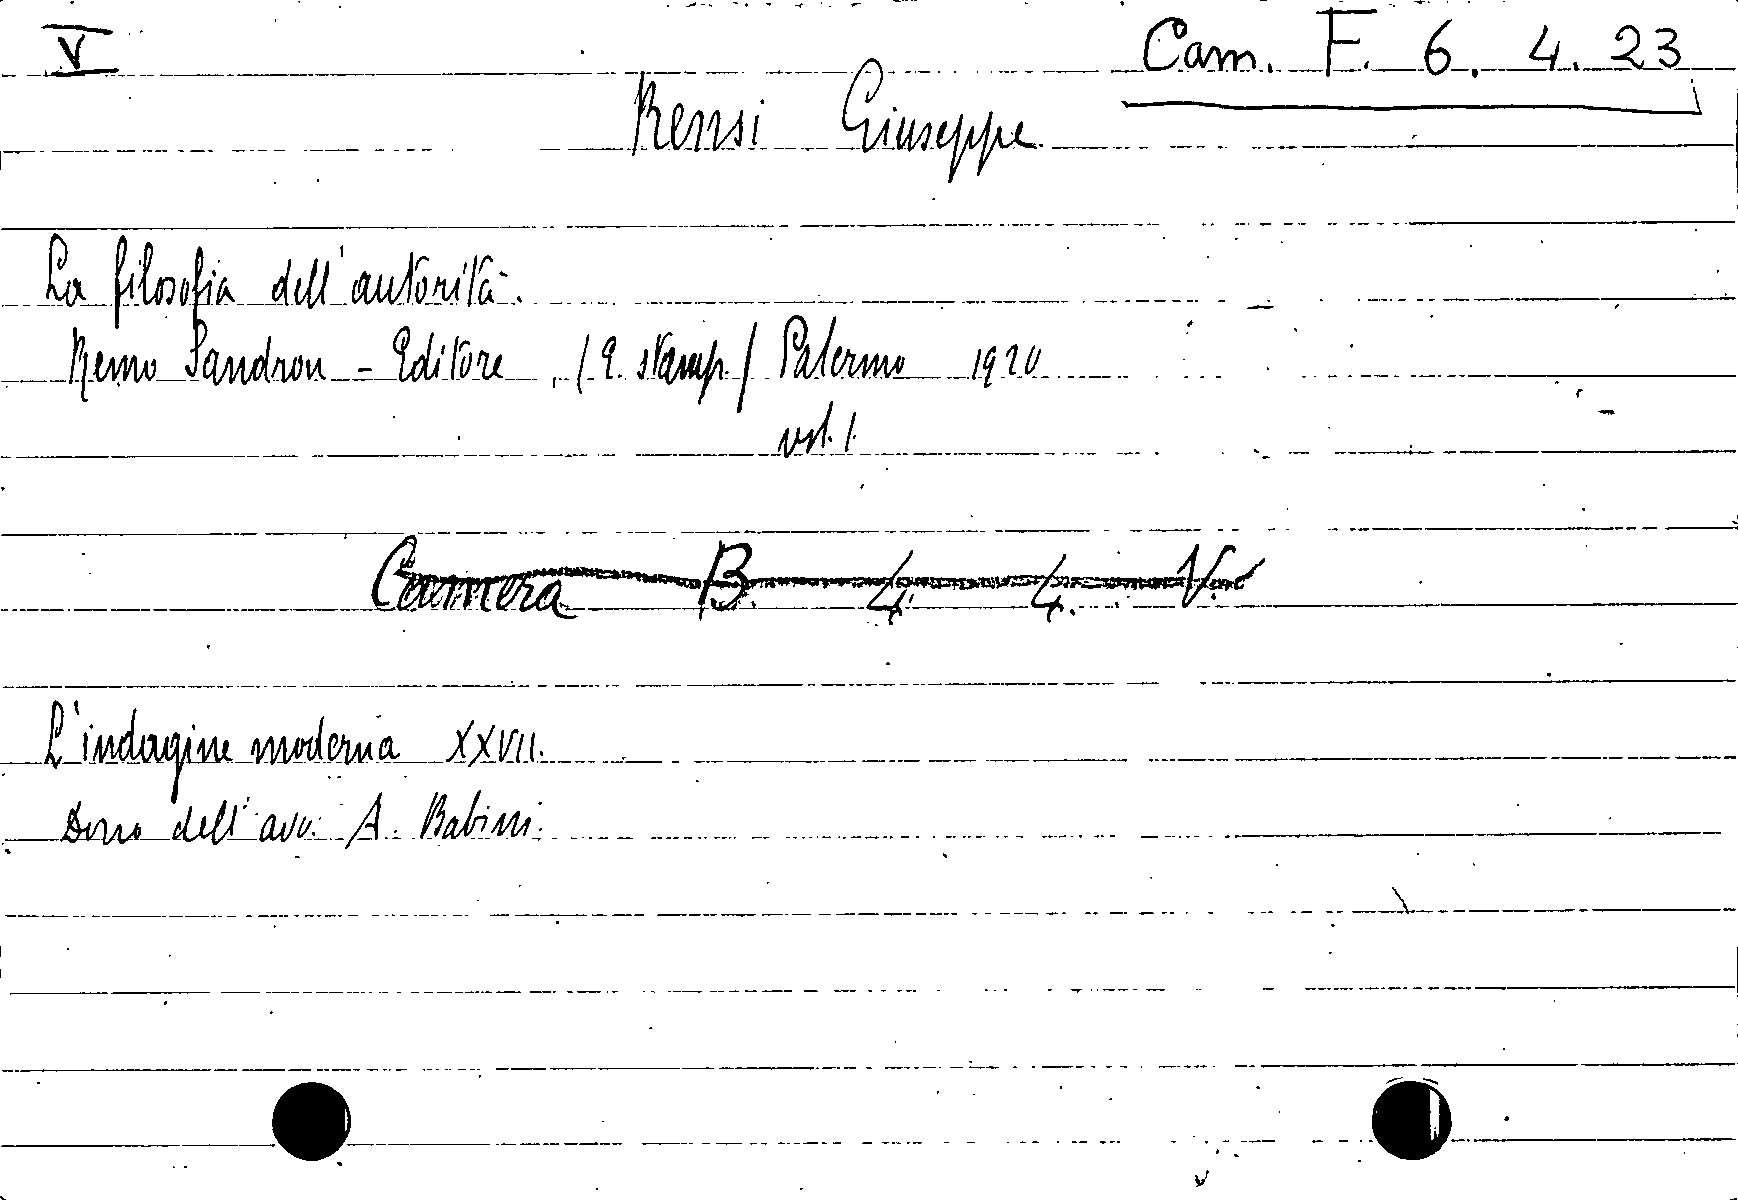 V
Cam. F. 6. 4. 23
Rensi Giuseppe
La filosofia dell'autorità.
Remo Sandron - Editore, (E. stamp.) Palermo 1920
vol. 1.
Camera B. 4. 4. V.
L'indagine moderna XXVII.
Dono dell'avv. A. Babini.